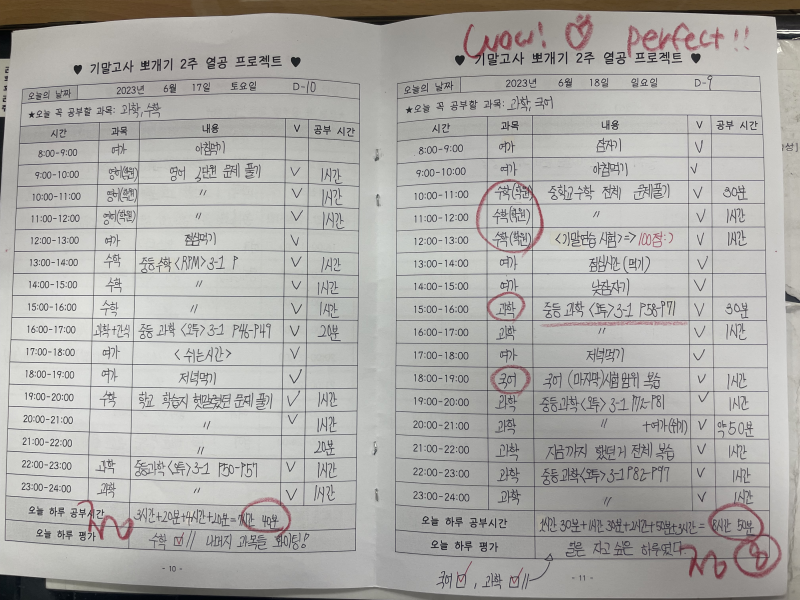 ♥ 기말고사 뽀개기 2주 열공 프로젝트 ♥
오늘의 날짜 2023년 6월 17일 토요일 D-10
★오늘 꼭 공부할 과목: 과학, 수학
시간 과목 내용 V 공부 시간
8:00-9:00 여가 아침먹기
9:00-10:00 영어(학원) 영어 3단원 문제 풀기 V 1시간
10:00-11:00 영어(학원) 〃 V 1시간
11:00-12:00 영어(학원) 〃 V 1시간
12:00-13:00 여가 점심먹기 V
13:00-14:00 수학 중등수학 <RPM> 3-1 P V 1시간
14:00-15:00 수학 〃 V 1시간
15:00-16:00 수학 〃 V 1시간
16:00-17:00 과학+간식 중등 과학 <오투> 3-1 P46-P49 V 20분
17:00-18:00 여가 <쉬는시간> V
18:00-19:00 여가 저녁먹기 V
19:00-20:00 수학 학교 학습지 헷갈렸던 문제 풀기 V 1시간
20:00-21:00 V 1시간
21:00-22:00 〃 20분
22:00-23:00 과학 중등과학 <오투> 3-1 P50-P57 V 1시간
23:00-24:00 과학 〃 V 1시간
오늘 하루 공부시간 3시간+20분+4시간+20분=7시간 40분
오늘 하루 평가 수학 // 나머지 과목들 화이팅!
- 10 -
Wow! perfect!!
♥ 기말고사 뽀개기 2주 열공 프로젝트 ♥
오늘의 날짜 2023년 6월 18일 일요일 D-9
★오늘 꼭 공부할 과목: 과학, 국어
시간 과목 내용 V 공부 시간
8:00-9:00 여가 잠자기 V
9:00-10:00 여가 아침먹기 V
10:00-11:00 수학(학원) 중학교수학 전체 문제풀기 V 30분
11:00-12:00 수학(학원) 〃 V 1시간
12:00-13:00 수학(학원) <기말연습 시험> => 100점:) V 1시간
13:00-14:00 여가 점심시간 (먹기) V
14:00-15:00 여가 낮잠자기 V
15:00-16:00 과학 중등 과학 <오투> 3-1 P58-P71 V 30분
16:00-17:00 과학 〃 V 1시간
17:00-18:00 여가 저녁먹기 V
18:00-19:00 국어 국어 (마지막)시험범위 복습 V 1시간
19:00-20:00 과학 중등과학 <오투> 3-1 P72-P81 V 1시간
20:00-21:00 과학 〃 +여가(쉬기) V 약50분
21:00-22:00 과학 지금까지 했던거 전체 복습 V 1시간
22:00-23:00 과학 중등과학 <오투> 3-1 P82-P97 V 1시간
23:00-24:00 과학 〃 V 1시간
오늘 하루 공부시간 1시간 30분+1시간 30분+2시간+50분+3시간= 8시간 50분
오늘 하루 평가 자고 싶은 하루였다
국어 , 과학 //
- 11 -